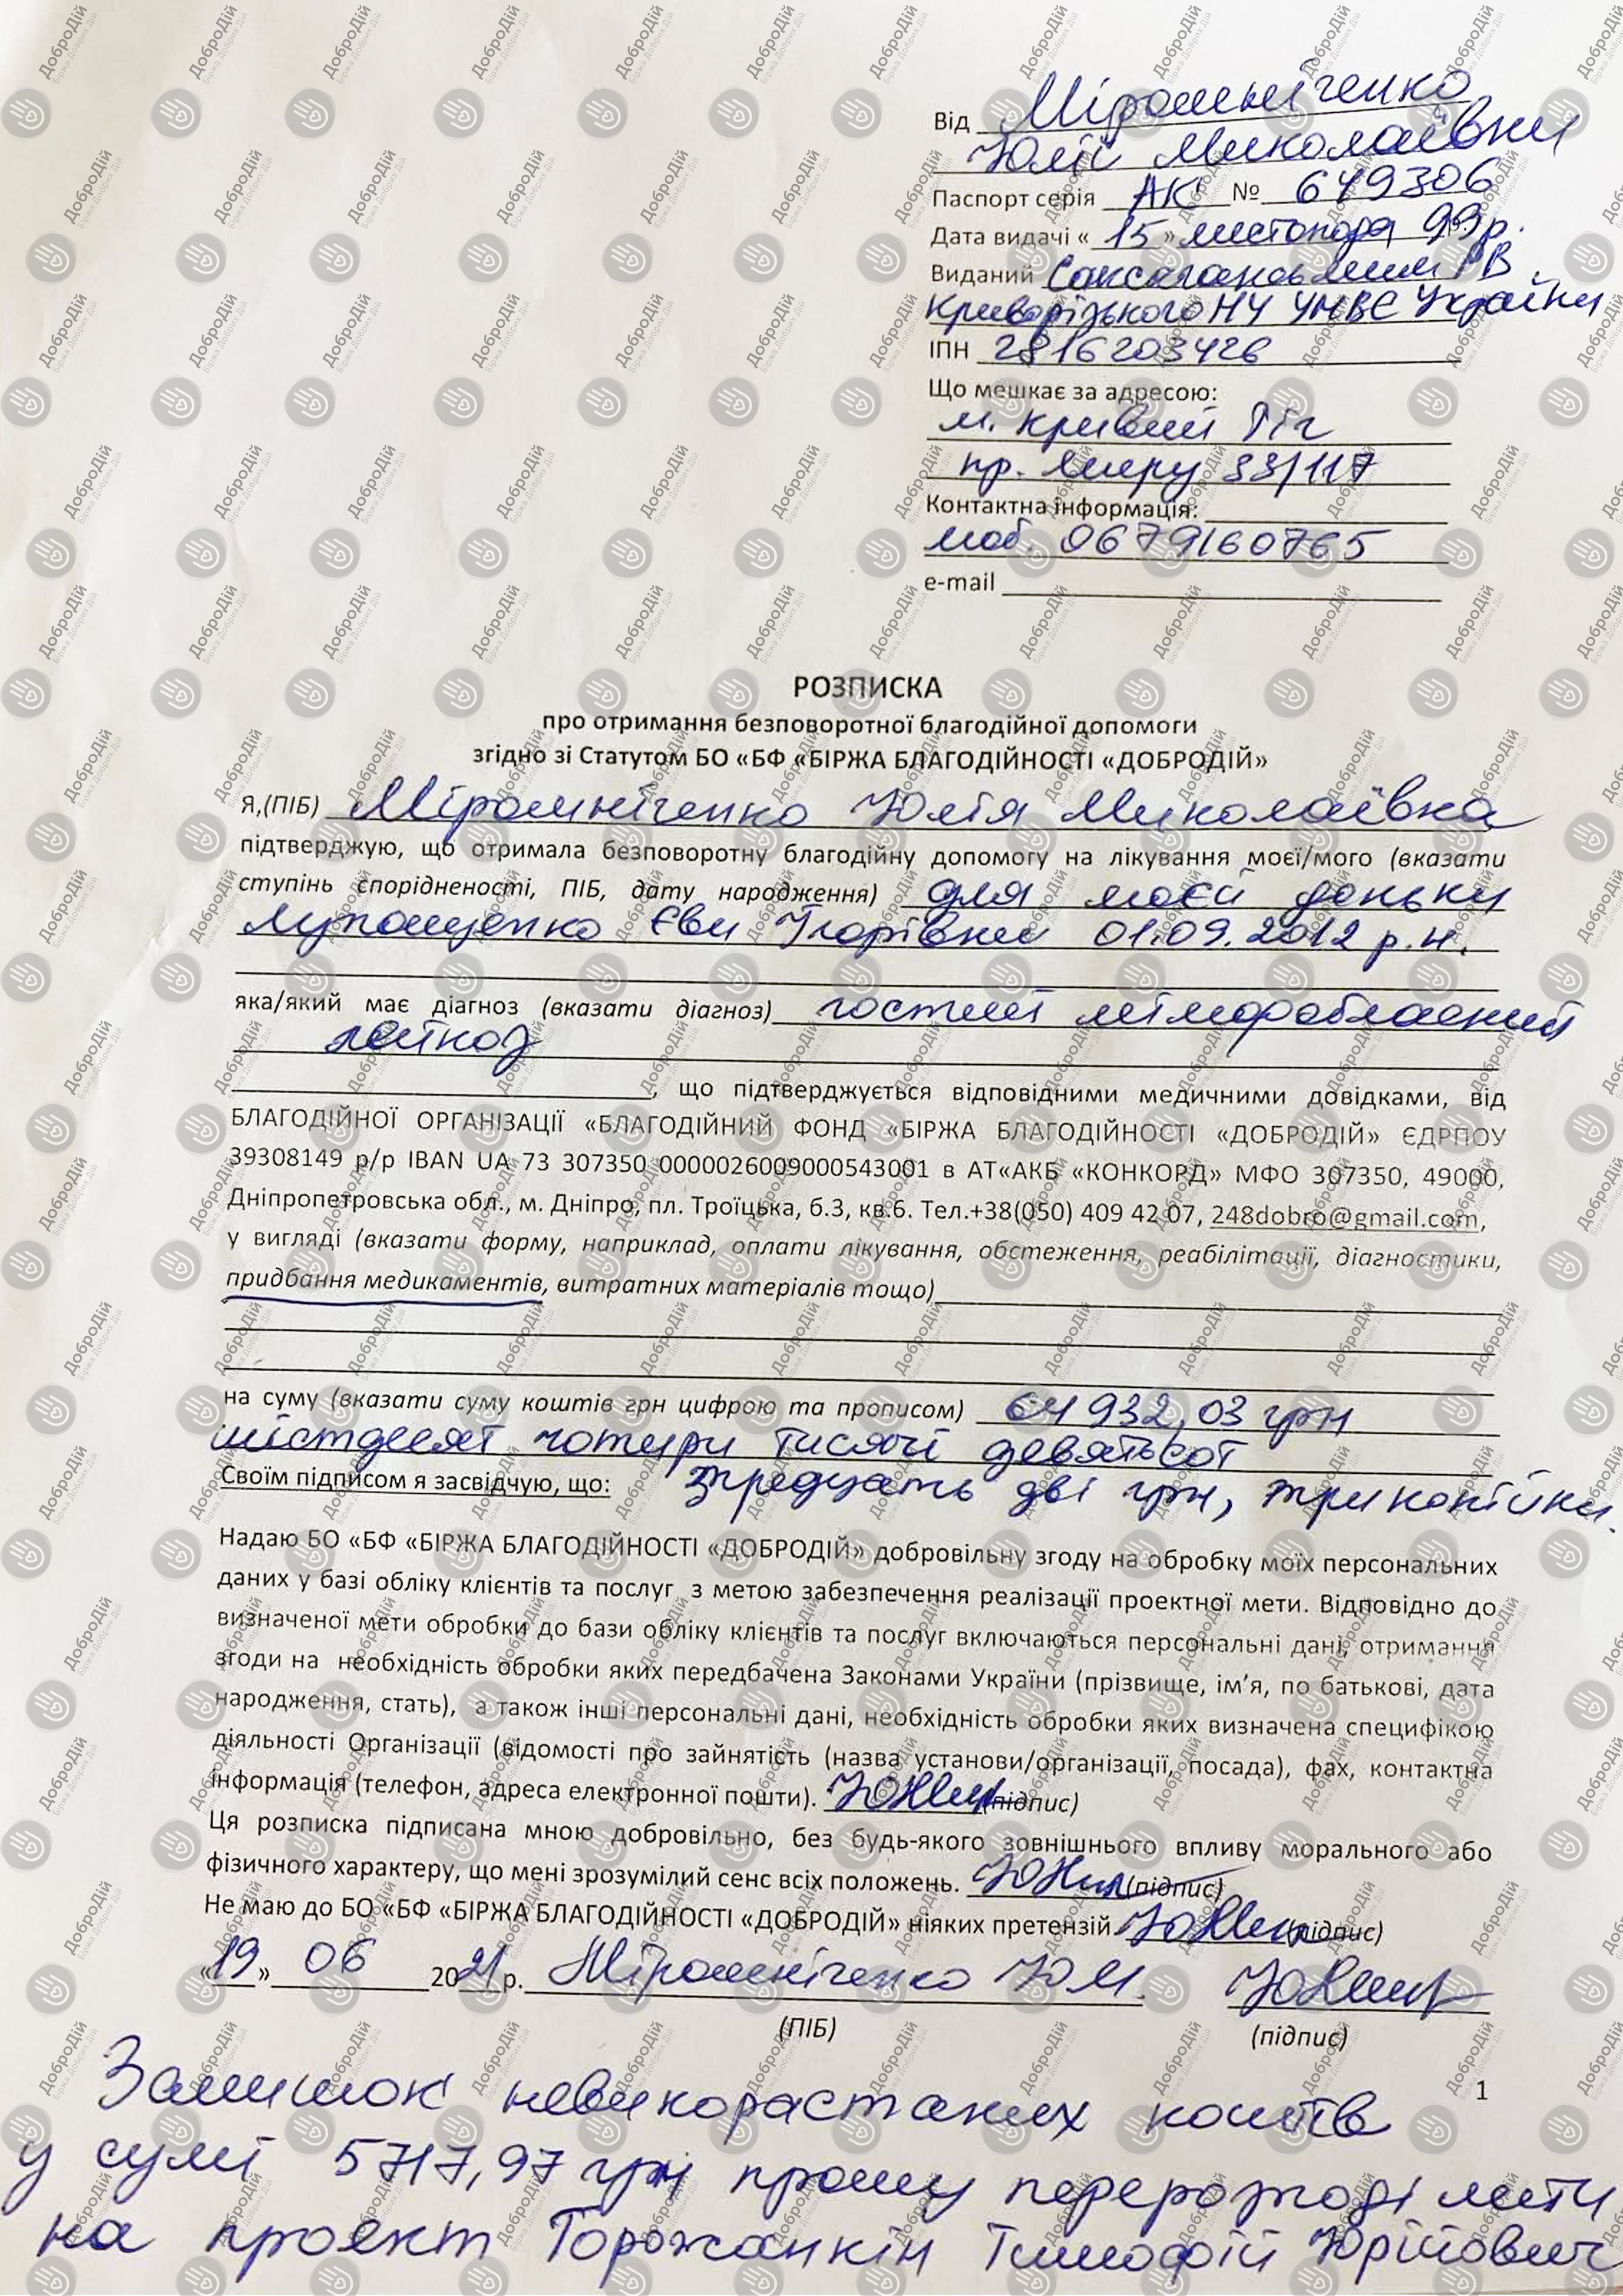 Від Мірошніченко
Юлії Миколаївни
Паспорт серія АК № 649306
Дата видачі « 15 » листопода 99р.
Виданий Саксаганським РВ
Криворізького НУ УМВС України
ІПН 2816203426
Що мешкає за адресою:
м. Кривий Ріг
пр. Миру 33/117
Контактна інформація:
моб. 0679160765
e-mail
РОЗПИСКА
про отримання безповоротної благодійної допомоги
згідно зі Статутом БО «БФ «БІРЖА БЛАГОДІЙНОСТІ «ДОБРОДІЙ»
Я,(ПІБ) Мірошніченко Юлія Миколаївна
підтверджую, що отримала безповоротну благодійну допомогу на лікування моєї/мого (вказати
ступінь спорідненості, ПІБ, дату народження) для моєй доньки
Лупощенко Єви Ігорівни 01.09.2012 р.н.
яка/який має діагноз (вказати діагноз) гострий лімфобласний
лейкоз
, що підтверджується відповідними медичними довідками, від
БЛАГОДІЙНОЇ ОРГАНІЗАЦІЇ «БЛАГОДІЙНИЙ ФОНД «БІРЖА БЛАГОДІЙНОСТІ «ДОБРОДІЙ» ЄДРПОУ
39308149 р/р IBAN UA 73 307350 0000026009000543001 в АТ«АКБ «КОНКОРД» МФО 307350, 49000,
Дніпропетровська обл., м. Дніпро, пл. Троїцька, б.3, кв.6. Тел.+38(050) 409 42 07, 248dobro@gmail.com,
у вигляді (вказати форму, наприклад, оплати лікування, обстеження, реабілітації, діагностики,
придбання медикаментів, витратних матеріалів тощо)
на суму (вказати суму коштів грн цифрою та прописом) 64 932,03 грн
шістдесят чотири тисячі девятьсот
Своїм підписом я засвідчую, що: тредцать дві грн, три копійки.
Надаю БО «БФ «БІРЖА БЛАГОДІЙНОСТІ «ДОБРОДІЙ» добровільну згоду на обробку моїх персональних
даних у базі обліку клієнтів та послуг з метою забезпечення реалізації проектної мети. Відповідно до
визначеної мети обробки до бази обліку клієнтів та послуг включаються персональні дані, отримання
згоди на необхідність обробки яких передбачена Законами України (прізвище, ім’я, по батькові, дата
народження, стать), а також інші персональні дані, необхідність обробки яких визначена специфікою
діяльності Організації (відомості про зайнятість (назва установи/організації, посада), фах, контактна
інформація (телефон, адреса електронної пошти). (підпис)
Ця розписка підписана мною добровільно, без будь-якого зовнішнього впливу морального або
фізичного характеру, що мені зрозумілий сенс всіх положень. (підпис)
Не маю до БО «БФ «БІРЖА БЛАГОДІЙНОСТІ «ДОБРОДІЙ» ніяких претензій (підпис)
«19» 06 2021 р. Мірошніченко Ю М.
(ПІБ) (підпис)
1
Залишок невикорастаних коштів
у сумі 5717,97 грн прошу перерозподілити
на проєкт Горожанкін Тимофій Юрійович
ДоброДій
Біржа Добрих Дій